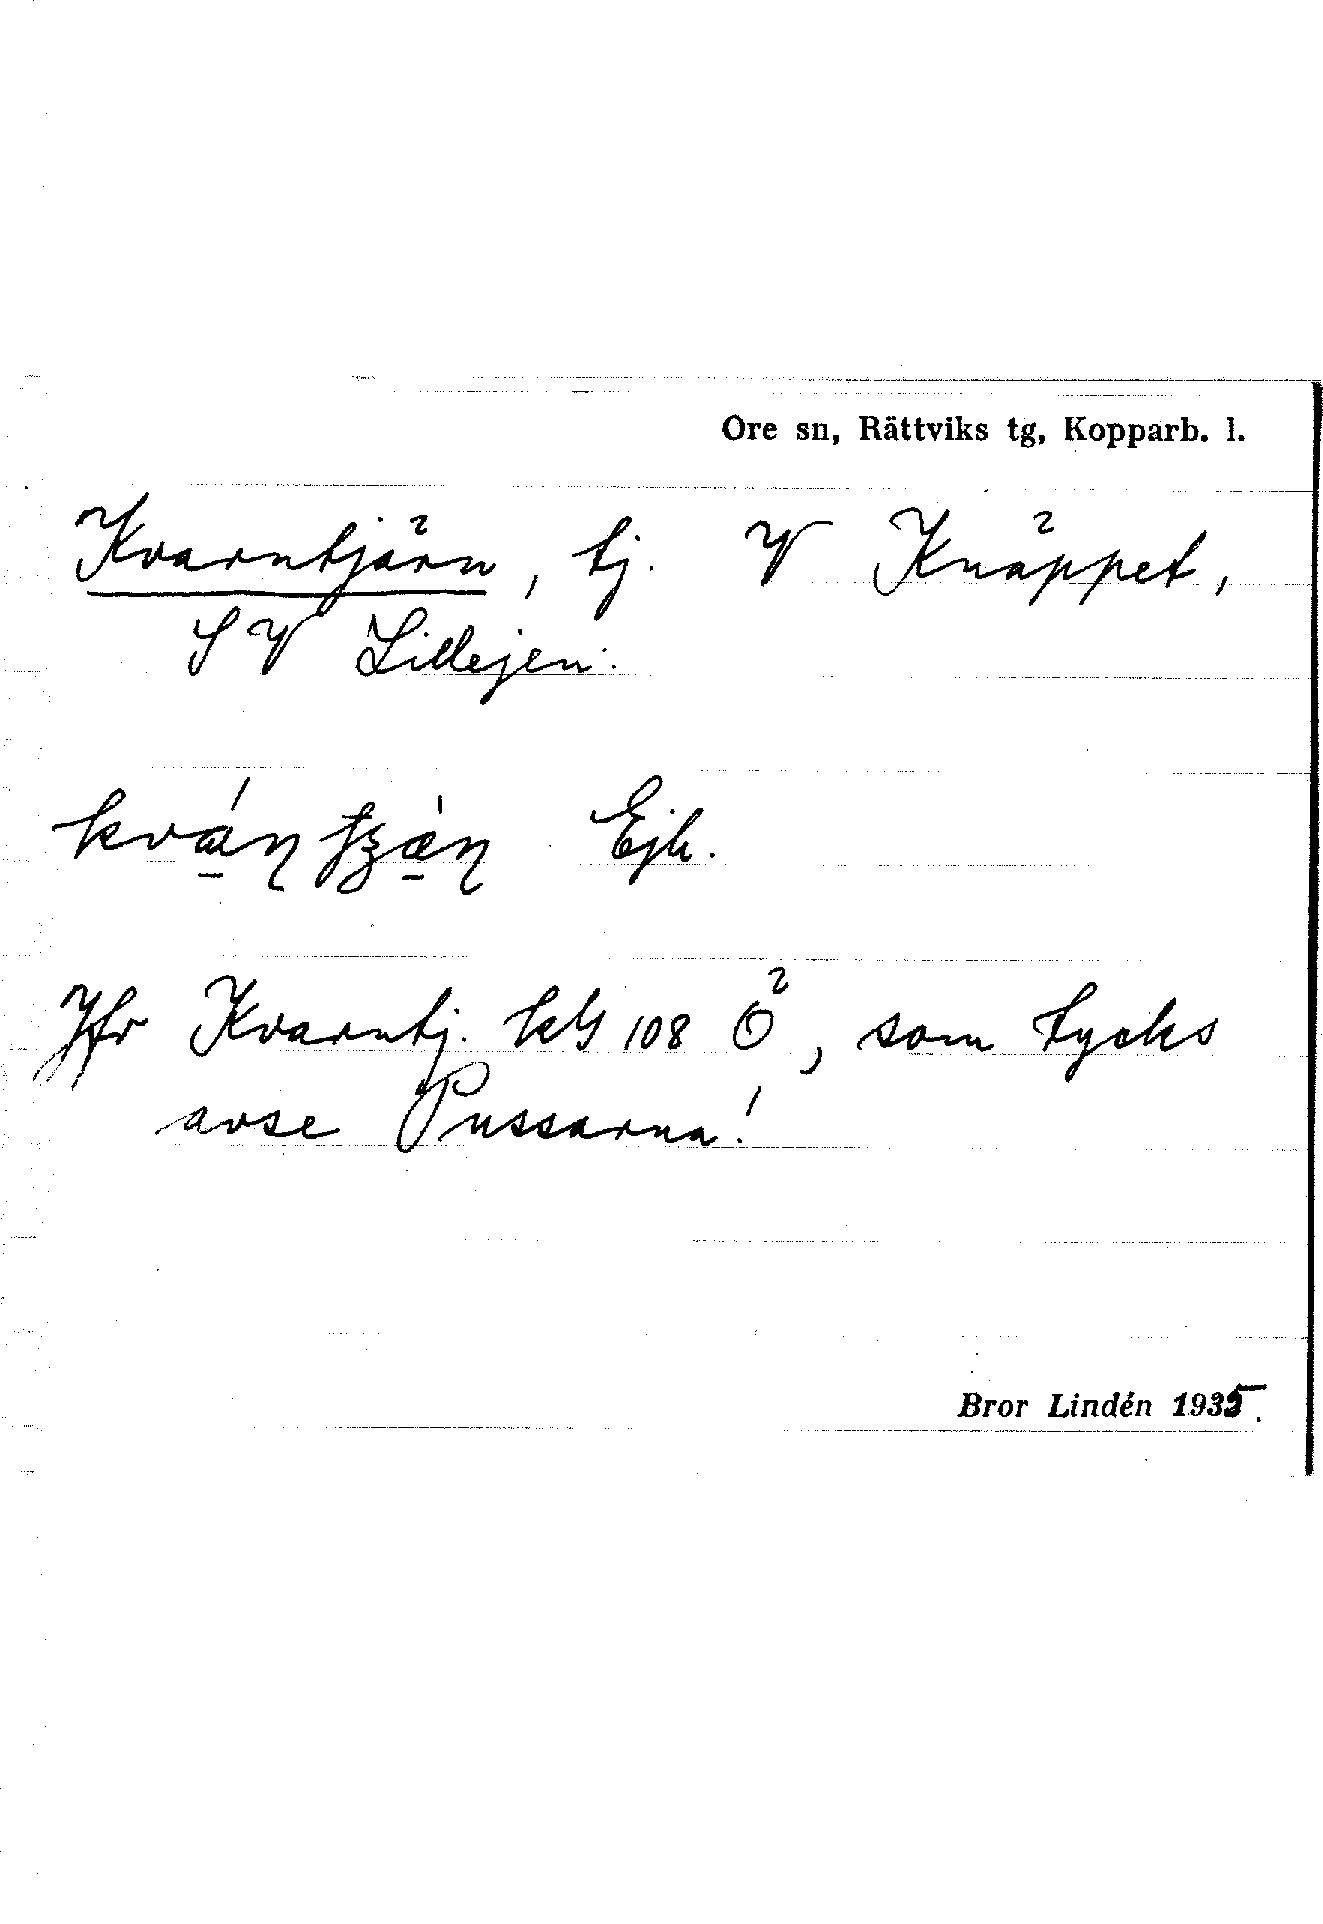 Ore sn, Rättviks tg, Kopparb. l.
Kvarntjärn, tj. V Knäppet,
SV Lillejen.
Ejh.
Jfr Kvarntj. kbl 108 Ö, som tycks
avse Pussarna!
Bror Lindén 1935.